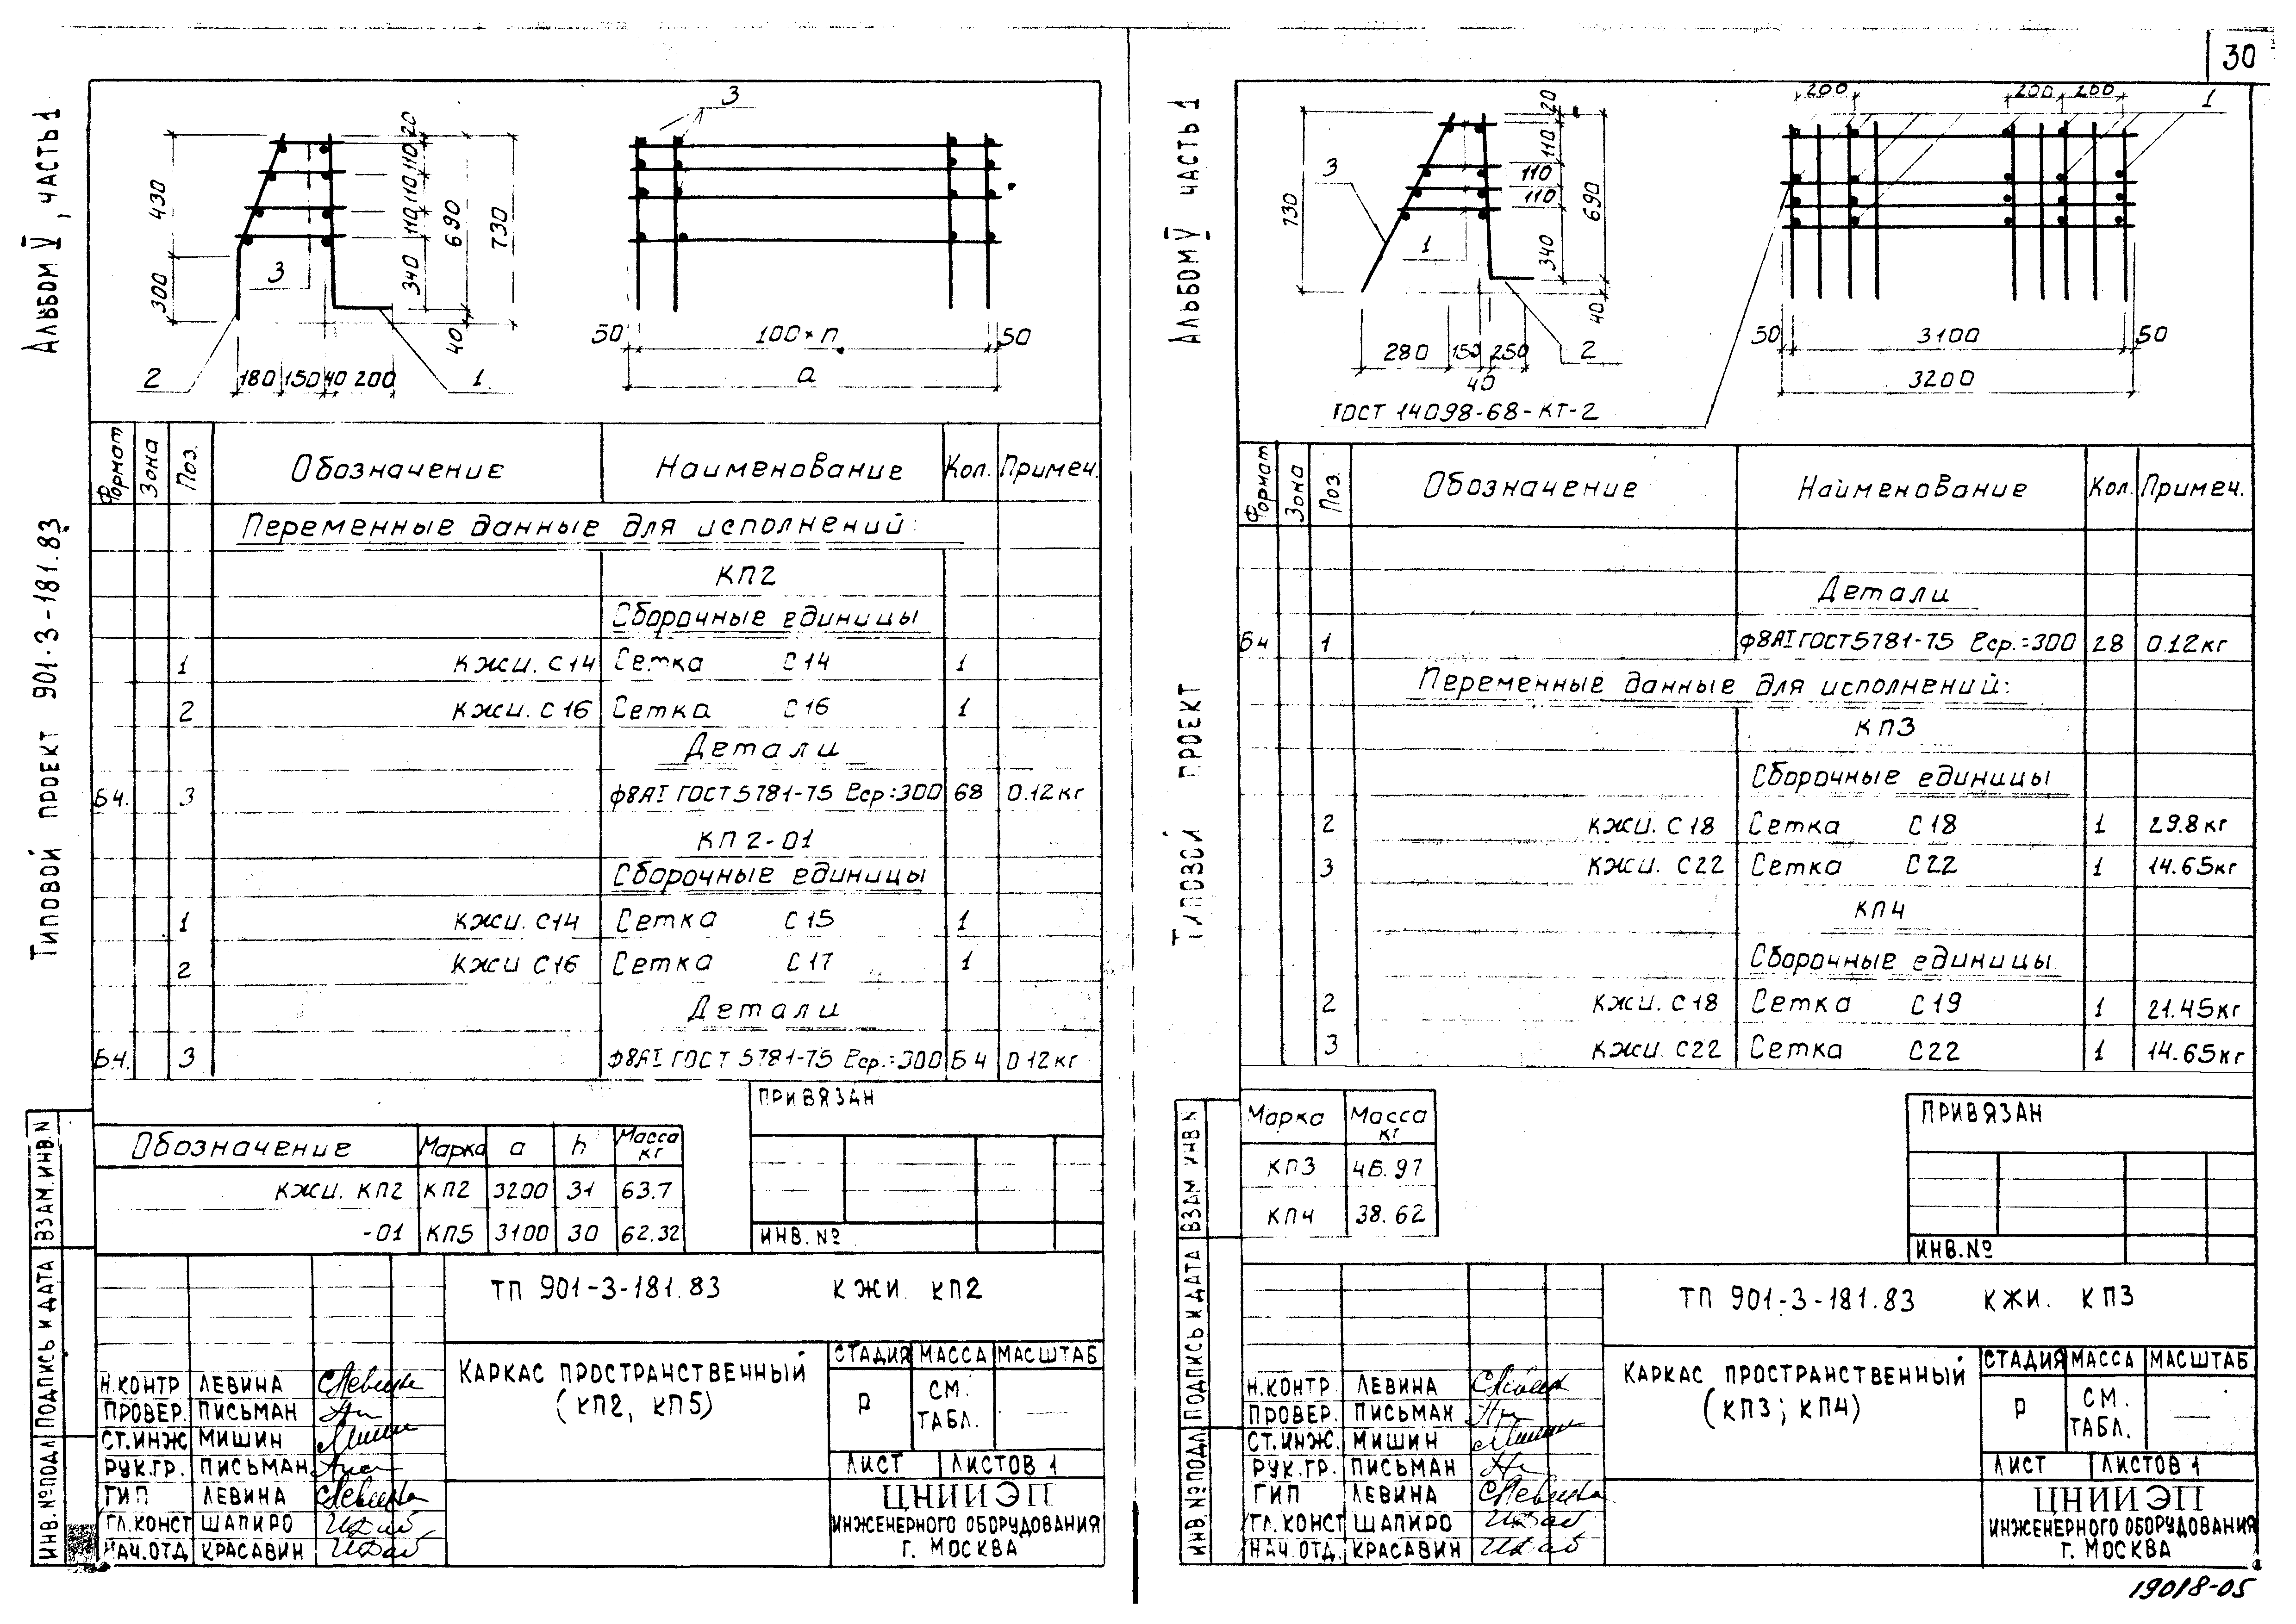 30
Альбом V, часть 1
Типовой проект 901-3-181.83
3
20
110
110
110
340
690
730
40
430
300
3
2
180 150 40 200
1
3
50
100×n
50
a
Формат Зона Поз. Обозначение Наименование Кол. Примеч.
Переменные данные для исполнений:
КП2
Сборочные единицы
1 КЖИ. С14 Сетка С14 1
2 КЖИ. С16 Сетка С16 1
Детали
Б4. 3 ф8АI ГОСТ 5781-75 ℓср.=300 68 0.12кг
КП2-01
Сборочные единицы
1 КЖИ. С14 Сетка С15 1
2 КЖИ С16 Сетка С17 1
Детали
Б4. 3 ф8АI ГОСТ 5781-75 ℓср.=300 64 0.12кг
ПРИВЯЗАН
ИНВ. №
Обозначение Марка a h Масса кг
КЖИ. КП2 КП2 3200 31 63.7
-01 КП5 3100 30 62.32
ТП 901-3-181.83 КЖИ. КП2
КАРКАС ПРОСТРАНСТВЕННЫЙ
(КП2, КП5)
СТАДИЯ МАССА МАСШТАБ
Р СМ. ТАБЛ.
ЛИСТ ЛИСТОВ 1
ЦНИИЭП
ИНЖЕНЕРНОГО ОБОРУДОВАНИЯ
Г. МОСКВА
Н.КОНТР ЛЕВИНА
ПРОВЕР. ПИСЬМАН
СТ.ИНЖ МИШИН
РУК.ГР. ПИСЬМАН
ГИП ЛЕВИНА
ГЛ.КОНСТ ШАПИРО
НАЧ.ОТД КРАСАВИН
ВЗАМ.ИНВ.N
ПОДПИСЬ И ДАТА
ИНВ.№ПОДЛ
Альбом V часть 1
Типовой проект
20
110
110
110
340
690
40
730
3
1
280 150 250
40
2
ГОСТ 14098-68-КТ-2
200
200 200
1
50
3100
50
3200
Формат Зона Поз. Обозначение Наименование Кол. Примеч.
Детали
Б4 1 ф8АI ГОСТ 5781-75 ℓср.=300 28 0.12кг
Переменные данные для исполнений:
КП3
Сборочные единицы
2 КЖИ. С18 Сетка С18 1 29.8кг
3 КЖИ. С22 Сетка С22 1 14.65кг
КП4
Сборочные единицы
2 КЖИ. С18 Сетка С19 1 21.45кг
3 КЖИ. С22 Сетка С22 1 14.65кг
Марка Масса кг
КП3 46.97
КП4 38.62
ПРИВЯЗАН
ИНВ. №
ТП 901-3-181.83 КЖИ. КП3
КАРКАС ПРОСТРАНСТВЕННЫЙ
(КП3; КП4)
СТАДИЯ МАССА МАСШТАБ
Р СМ. ТАБЛ.
ЛИСТ ЛИСТОВ 1
ЦНИИЭП
ИНЖЕНЕРНОГО ОБОРУДОВАНИЯ
Г. МОСКВА
Н.КОНТР. ЛЕВИНА
ПРОВЕР. ПИСЬМАН
СТ.ИНЖ. МИШИН
РУК.ГР. ПИСЬМАН
ГИП ЛЕВИНА
ГЛ.КОНСТ ШАПИРО
НАЧ.ОТД. КРАСАВИН
ВЗАМ ИНВ.N
ПОДПИСЬ И ДАТА
ИНВ.№ПОДЛ
19018-05